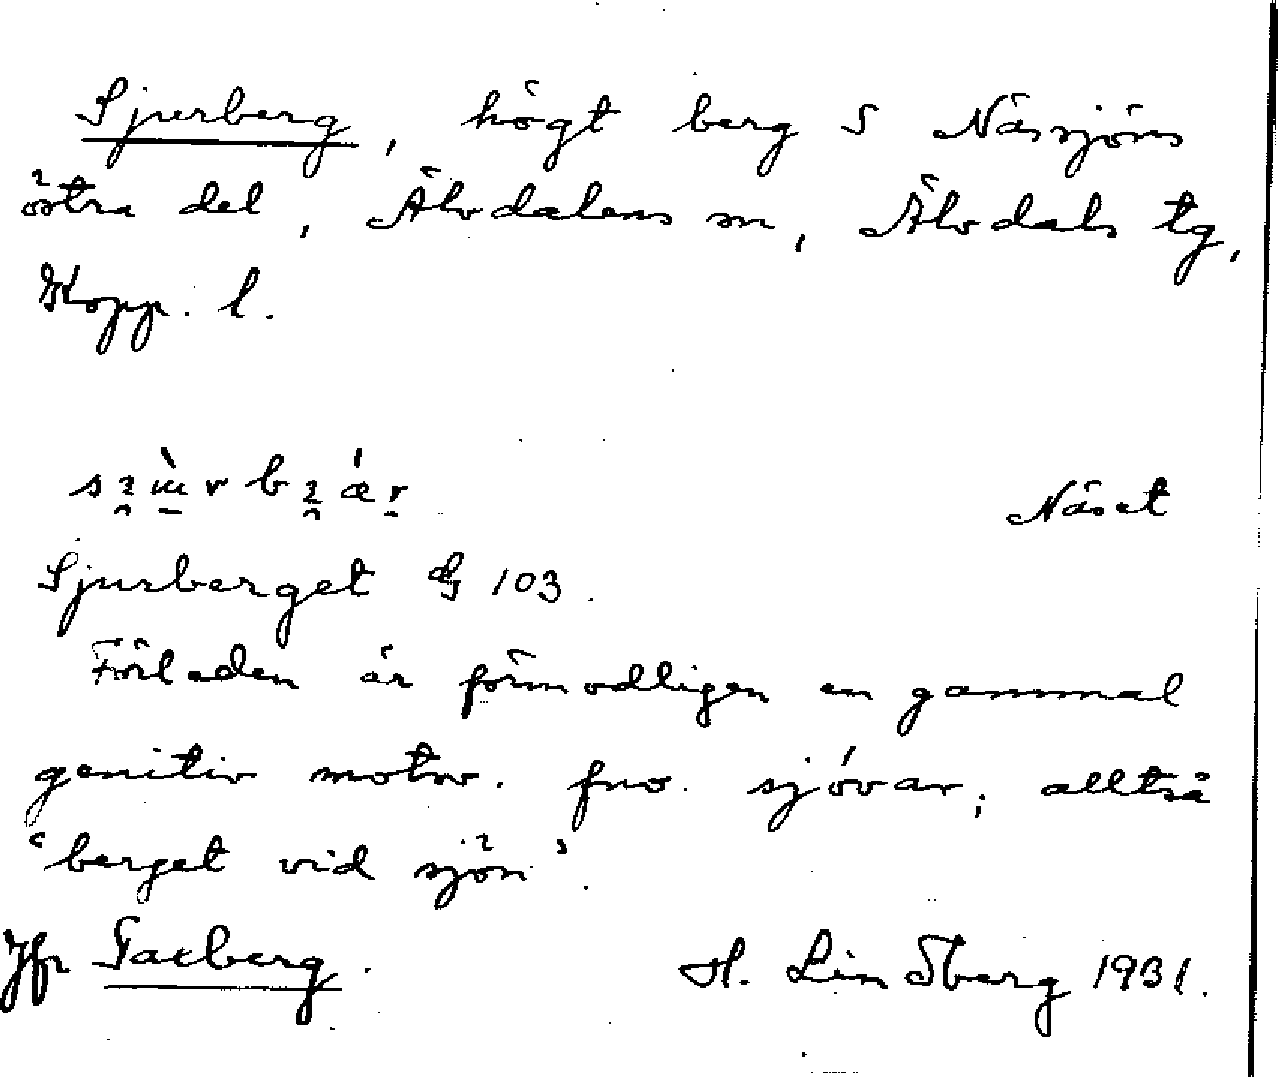 Sjurberg, högt berg S Nässjöns
östra del, Älvdalens sn, Älvdals tg,
Kopp. l.
Näset
Sjurberget G 103.
Förleden är förmodligen en gammal
genitiv motsv. fno. sjóvar, alltså
"berget vid sjön".
Jfr Saxberg. H. Lindberg 1931.